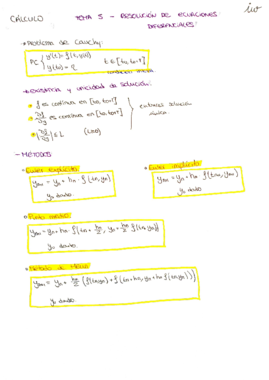 iw
CÁLCULO TEMA 5 - RESOLUCIÓN DE ECUACIONES
DIFERENCIALES:
Problema de Cauchy:
PC { y'(t) = f(t, y(t)) t ∈ [t₀, t₀+T]
y(t₀) = η condición inicial
Existencia y unicidad de solución:
f es continua en [t₀, t₀+T]
∂f/∂y es continua en [t₀, t₀+T] } entonces solución única.
|∂f/∂y| ≤ L (L>0)
- MÉTODOS
Euler explícito: Euler implícito:
yₙ₊₁ = yₙ + hₙ · f(tₙ, yₙ) yₙ₊₁ = yₙ + hₙ f(tₙ₊₁, yₙ₊₁)
y₀ dado y₀ dado
Punto medio:
yₙ₊₁ = yₙ + hₙ · f(tₙ + hₙ/2, yₙ + hₙ/2 f(tₙ, yₙ))
y₀ dado
Método de Heun:
yₙ₊₁ = yₙ + hₙ/2 (f(tₙ, yₙ) + f(tₙ + hₙ, yₙ + hₙ f(tₙ, yₙ)))
y₀ dado